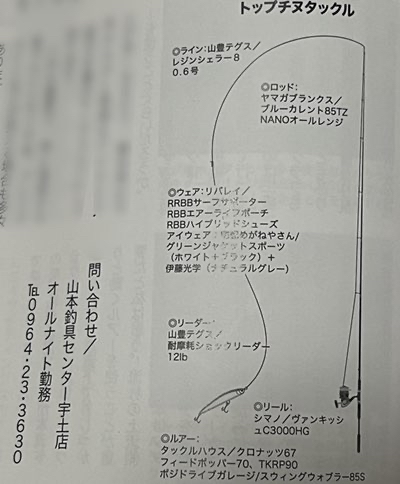 トップチヌタックル
◎ライン:山豊テグス/
レジンシェラー8
0.6号
◎ロッド:
ヤマガブランクス/
ブルーカレント85TZ
NANOオールレンジ
◎ウェア:リバレイ/
RRBBサーフサポーター
RBBエアーライフポーチ
RBBハイブリッドシューズ
アイウェア:めがねやさん/
グリーンジャケットスポーツ
(ホワイト+ブラック)+
伊藤光学(ナチュラルグレー)
◎リーダー:
山豊テグス/
耐摩耗ショックリーダー
12lb
◎リール:
シマノ/ヴァンキッシ
ュC3000HG
◎ルアー:
タックルハウス/クロナッツ67
フィードポッパー70、TKRP90
ポジドライブガレージ/スウィングウォブラー85S
問い合わせ/
山本釣具センター宇土店
オールナイト勤務
℡0964・23・3630